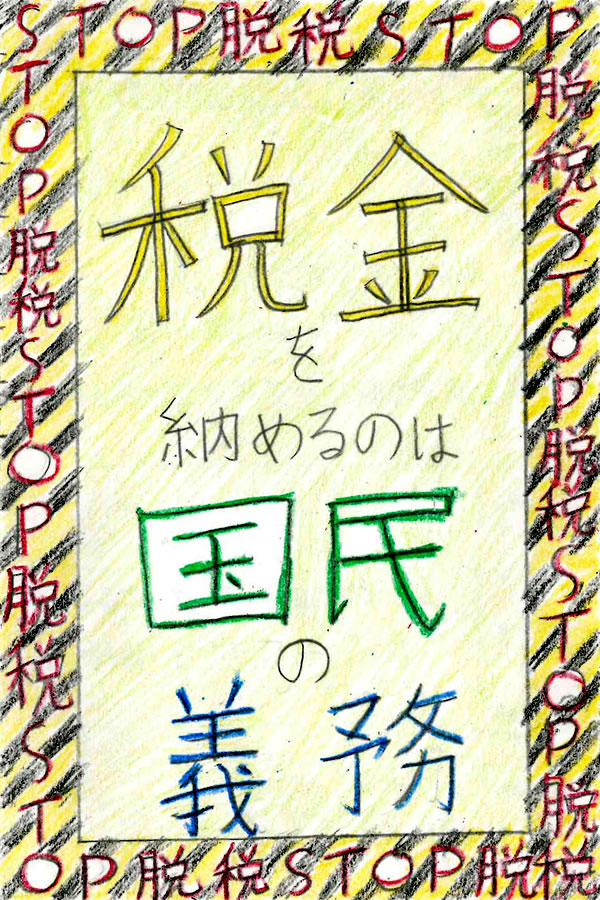 STOP脱税STOP
脱税STOP脱税STOP脱
税金
を
納めるのは
国民
の
義務
TOP脱税STOP脱税ST
OP脱税STOP脱税